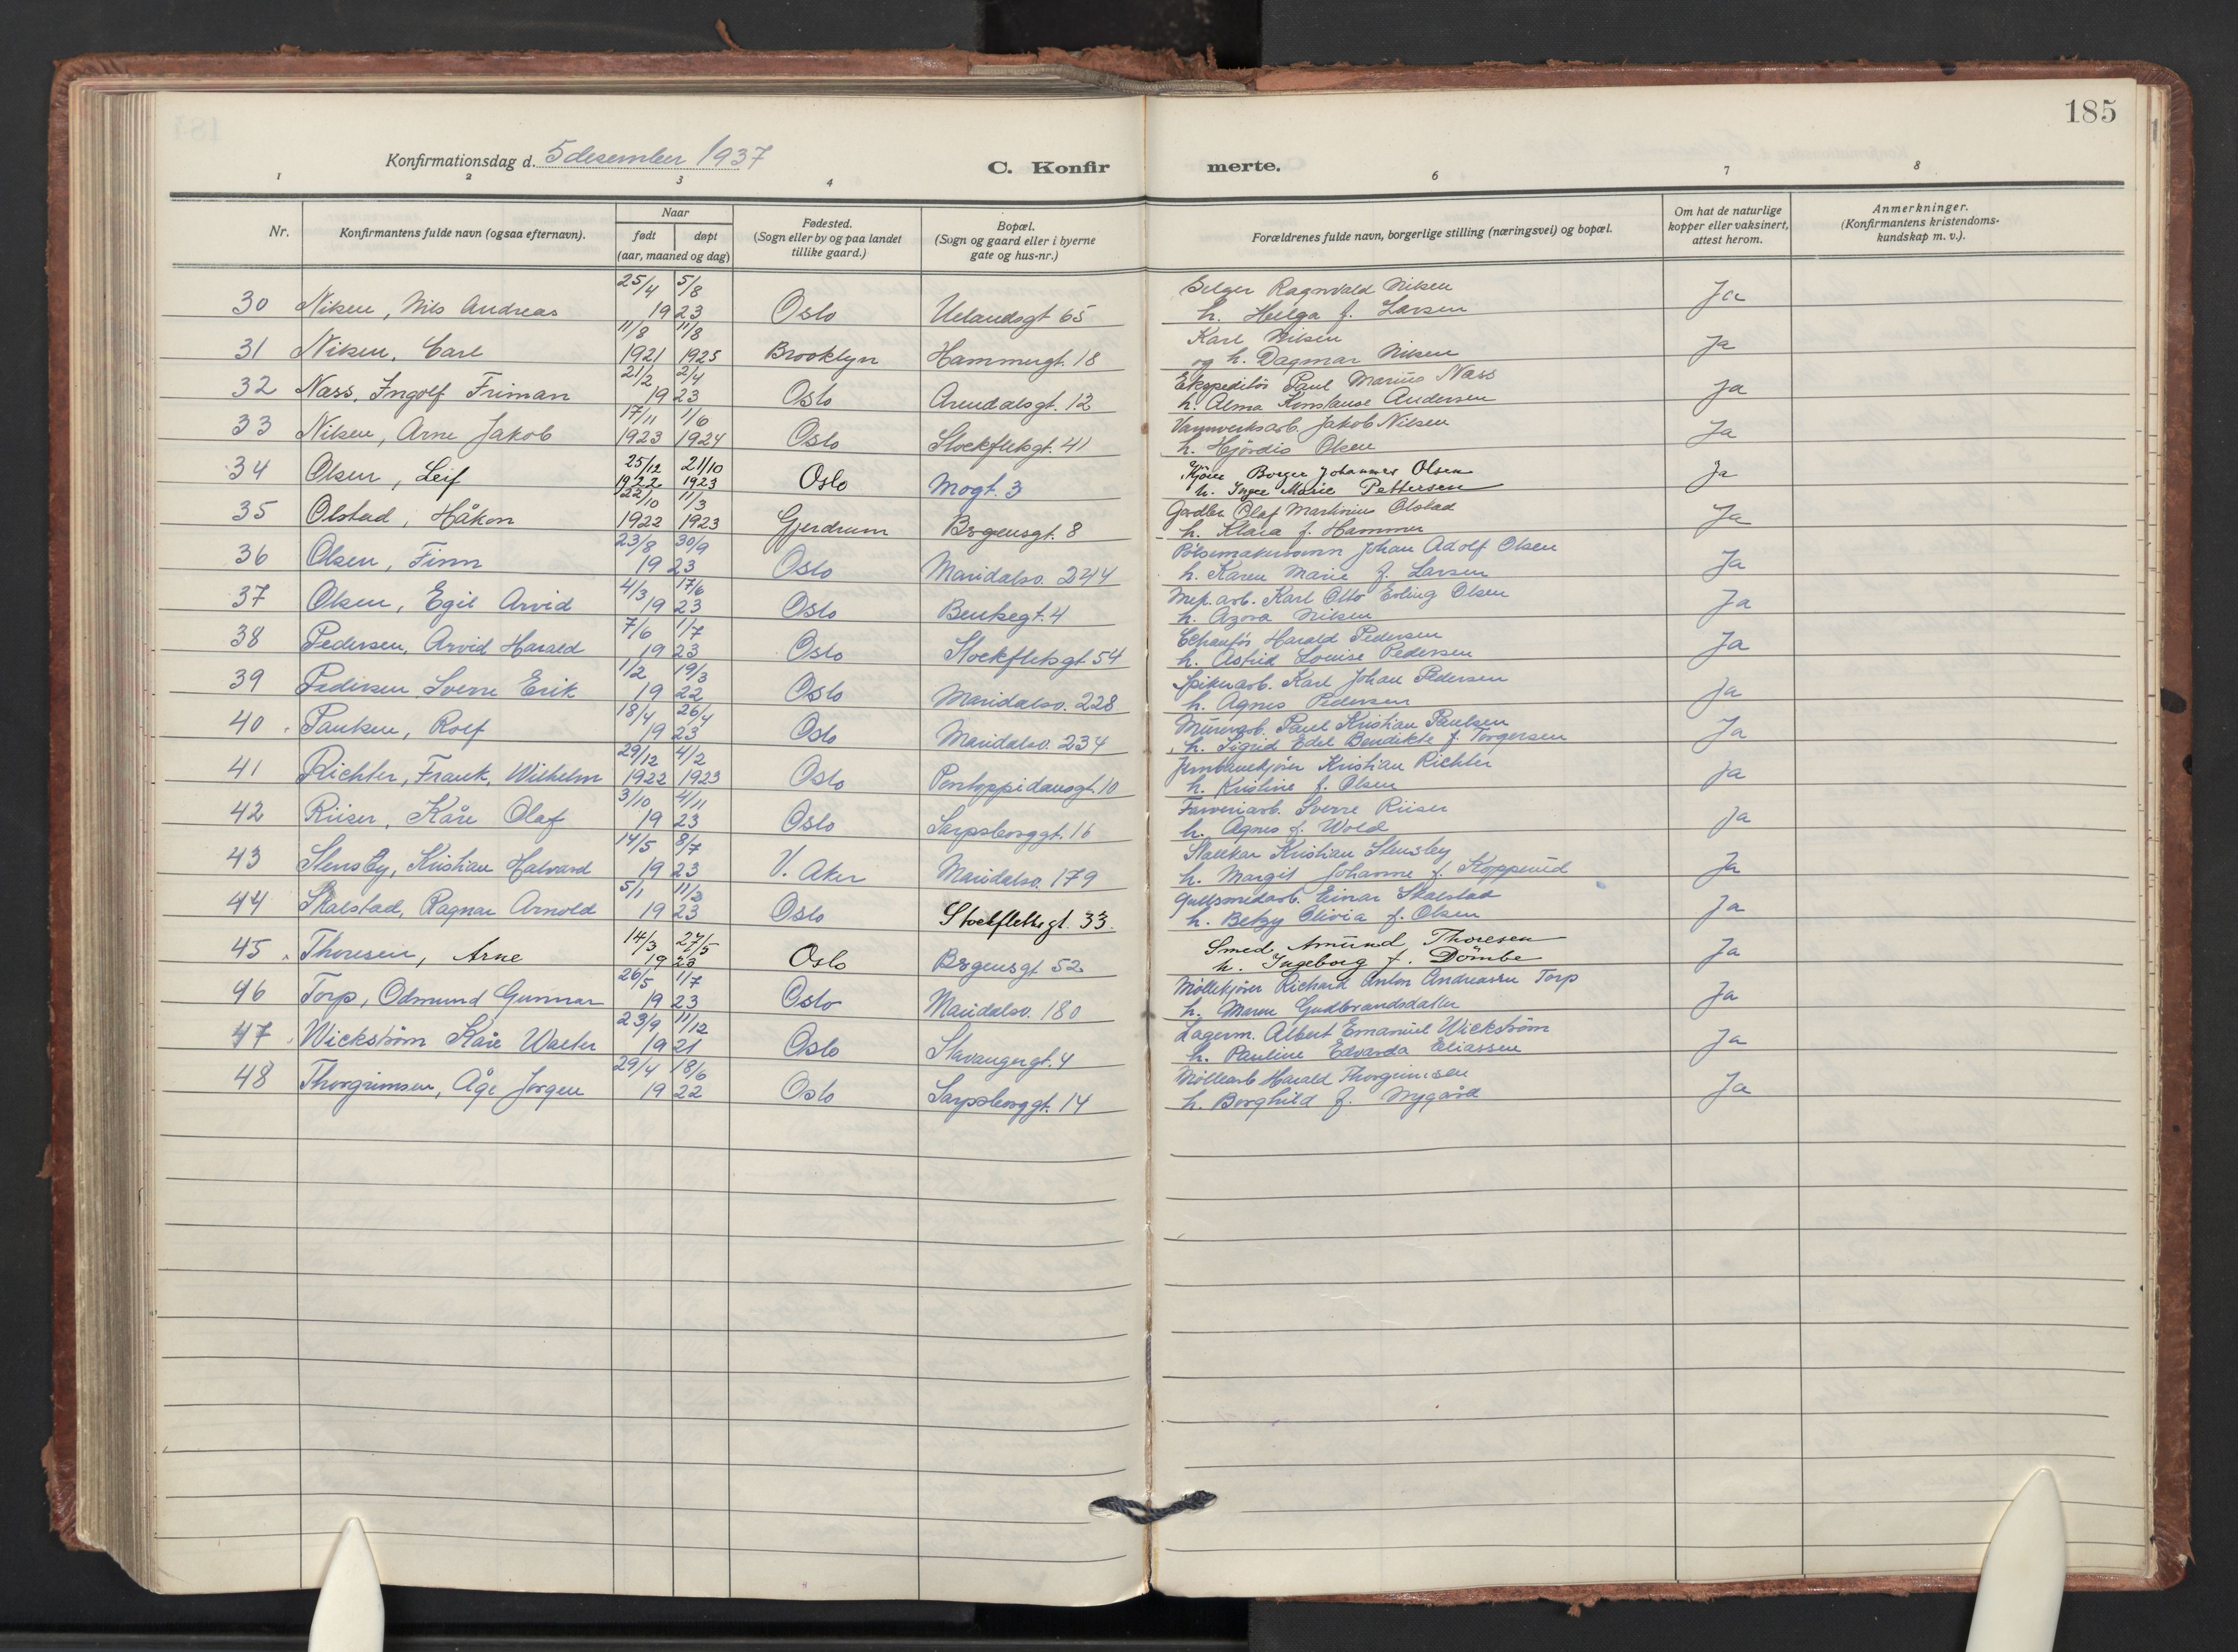 185
Konfirmationsdag d. 5 desember 1937
C. Konfirmerte.
1 2 3 4 6 7 8
Nr. Konfirmantens fulde navn (ogsaa efternavn). Naar født døpt (aar, maaned og dag) Fødested. (Sogn eller by og paa landet tillike gaard.) Bopæl. (Sogn og gaard eller i byerne gate og hus-nr.) Forældrenes fulde navn, borgerlige stilling (næringsvei) og bopæl. Om hat de naturlige kopper eller vaksinert, attest herom. Anmerkninger. (Konfirmantens kristendoms-kundskap m. v.).
25/4 5/8 Selger Ragnvald Nilsen
30 Nilsen, Nils Andreas 1923 Oslo Uelandsgt 65 h. Helga f. Larsen Ja
11/8 11/8 Karl Nilsen
31 Nilsen, Carl 1921 1925 Brooklyn Hammergt. 18 og h. Dagmar Nilsen Ja
21/2 2/4 Ekspeditør Paul Marius Næss
32 Næss, Ingolf Friman 1923 Oslo Arendalsgt. 12 h. Alma Konstanse Andersen Ja
17/11 1/6 Vannverksarb. Jakob Nilsen
33 Nilsen, Arne Jakob 1923 1924 Oslo Stockfletsgt. 41 h. Hjördis Olsen Ja
25/12 21/10 Kjörer Borger Johannes Olsen
34 Olsen, Leif 1922 1923 Oslo Mogt. 3 h. Inga Marie Pettersen Ja
22/10 11/3 Olaf Martinius Olstad
35 Olstad, Håkon 1922 1923 Gjerdrum Bergensgt. 8 h. Klara f. Hammer Ja
23/8 30/9 Pölsemakersvenn Johan Adolf Olsen
36 Olsen, Finn 1923 Oslo Maridalsv. 244 h. Karen Marie f. Larsen Ja
4/3 17/6 Mek. arb. Karl Otto Erling Olsen
37 Olsen, Egil Arvid 1923 Oslo Bentsegt. 4 h. Azora Nilsen Ja
7/6 1/7 Harald Pedersen
38 Pedersen, Arvid Harald 1923 Oslo Stockfletsgt. 54 h. Astrid Louise Pedersen Ja
1/2 19/3 Spikerarb. Karl Johan Pedersen
39 Pedersen Sverre Erik 1922 Oslo Maridalsv. 228 h. Agnes Pedersen Ja
18/4 26/4 Murerarb. Paul Kristian Paulsen
40 Paulsen, Rolf 1923 Oslo Maridalsv. 234 h. Sigrid Edel Bendikte f. Torgersen Ja
29/12 4/2 Kristian Richter
41 Richter, Frank, Wilhelm 1922 1923 Oslo Pontoppidansgt. 10 h. Kristine f. Olsen Ja
3/10 4/11 Farveriarb. Sverre Riiser
42 Riiser, Kåre Olaf 1923 Oslo Sarpsborggt. 16 h. Agnes f. Wold Ja
14/5 8/7 Stallkar Kristian Stensby
43 Stensby, Kristian Halvard 1923 V. Aker Maridalsv. 179 h. Margit Johanne f. Koppenud Ja
5/1 11/3 Gullsmedarb. Einar Skalstad
44 Skalstad, Ragnar Arnold 1923 Oslo Stockfletts gt. 33. h. Betzy Olivia f. Olsen Ja
14/3 27/5 Smed Amund Thoresen
45 Thoresen, Arne 1923 Oslo Bergensgt 52 h. Ingeborg f. Dömbe Ja
26/5 1/7 Möllekjörer Richard Anton Andreassen Torp
46 Torp, Odmund Gunnar 1923 Oslo Maridalsv. 180 h. Maren Gudbrandsdatter Ja
23/9 11/12 Lagerm. Albert Emanuel Wickström
47 Wickström Kåre Walter 1921 Oslo Stavangergt. 4 h. Pauline Edvarda Eliassen Ja
29/4 18/6 Möllearb Harald Thorgrimsen
48 Thorgrimsen, Åge Jørgen 1922 Oslo Sarpsborggt. 14 h. Borghild f. Nygård Ja